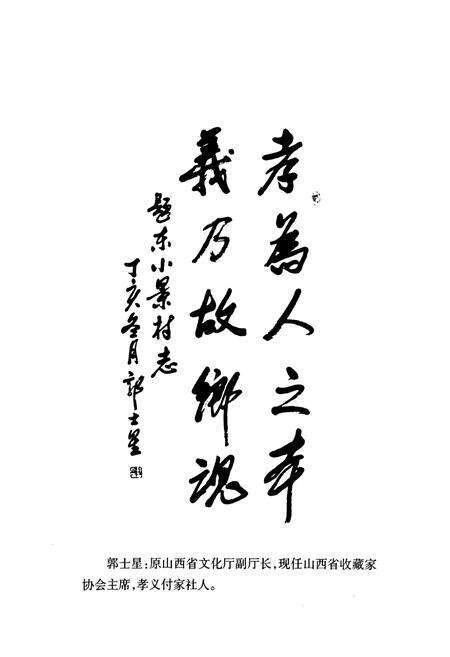 孝為人之本
義乃故鄉魂
题东小景村志
丁亥冬月郭士星
郭士星:原山西省文化厅副厅长,现任山西省收藏家
协会主席,孝义付家社人。